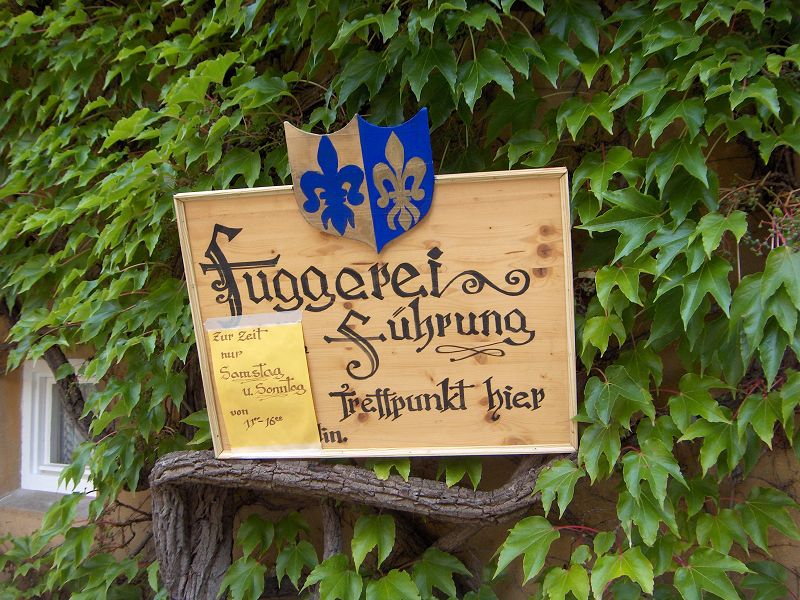 Fuggerei
Führung
Treffpunkt hier
Zur Zeit
nur
Samstag
u. Sonntag
von